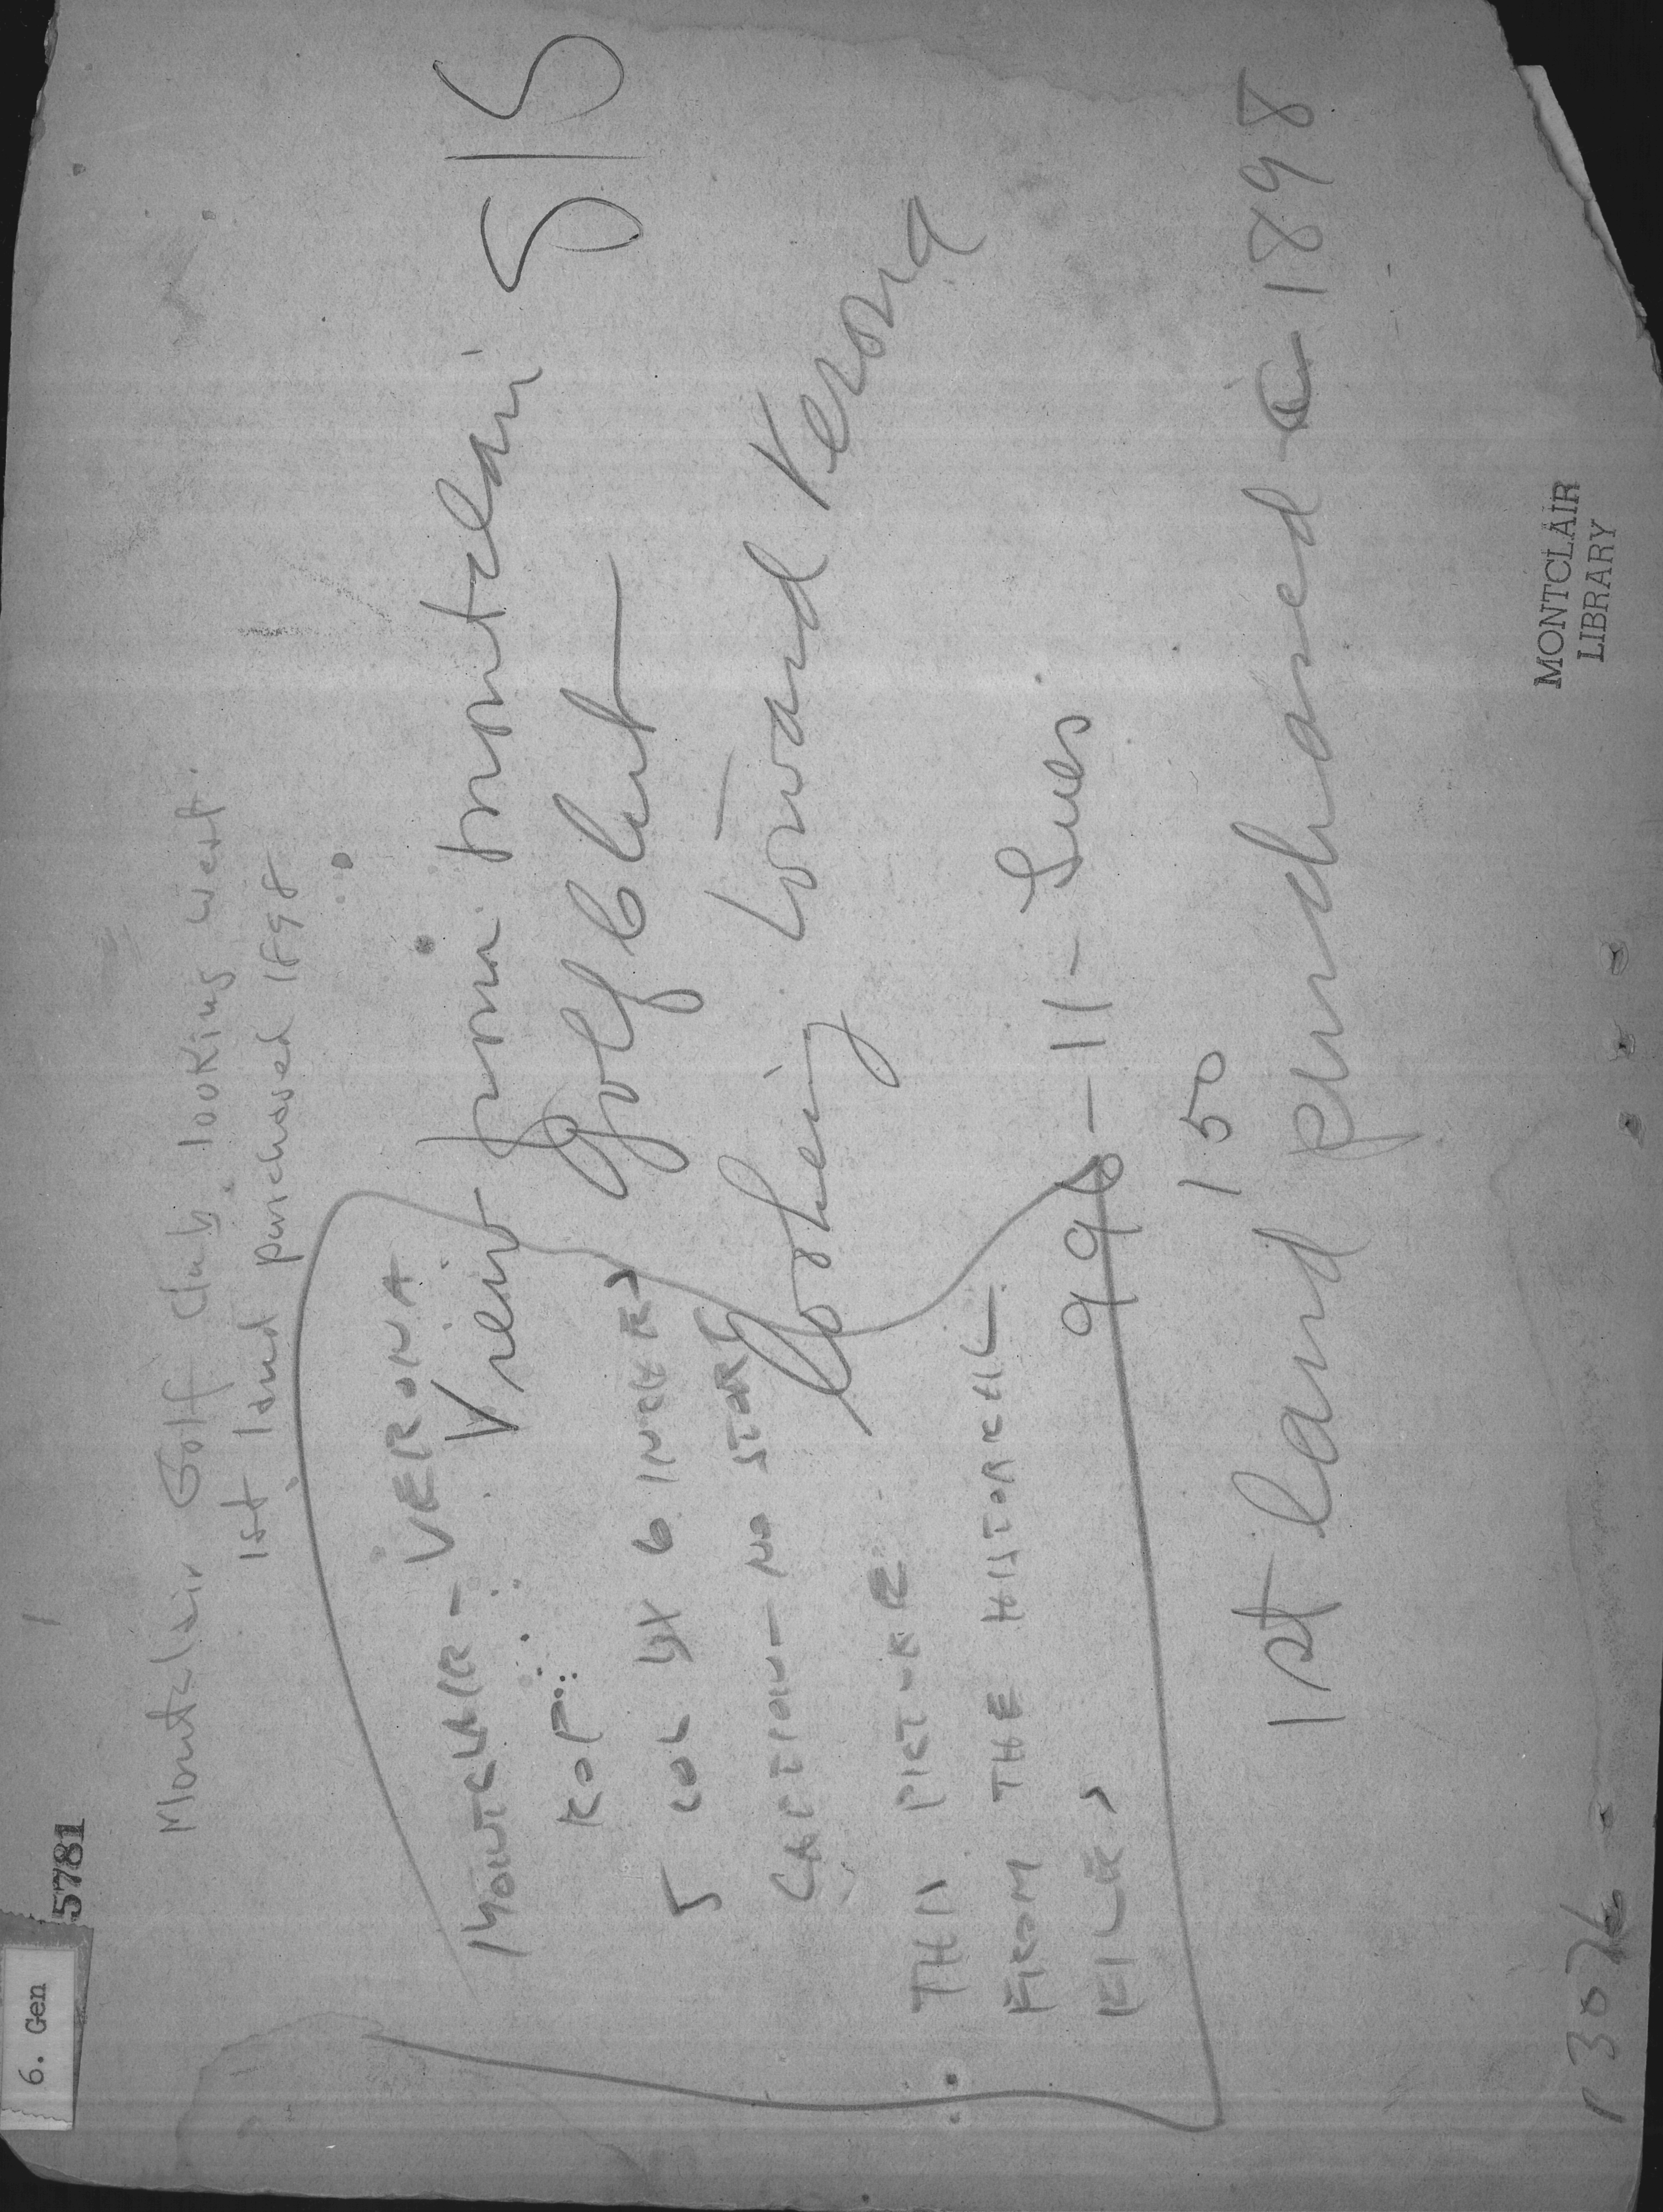 6. Gen
5781
Montclair Golf Club, looking west.
1st land purchased 1898
View from Montclair
Golf Club
looking toward Verona
MONTCLAIR - VERONA
5 COL BY 6 INCHES
CAPTION - NO STORY
THIS PICTURE
FROM THE HISTORICAL
FILES
11 - Sues
150
1st land purchased 1898
MONTCLAIR
LIBRARY